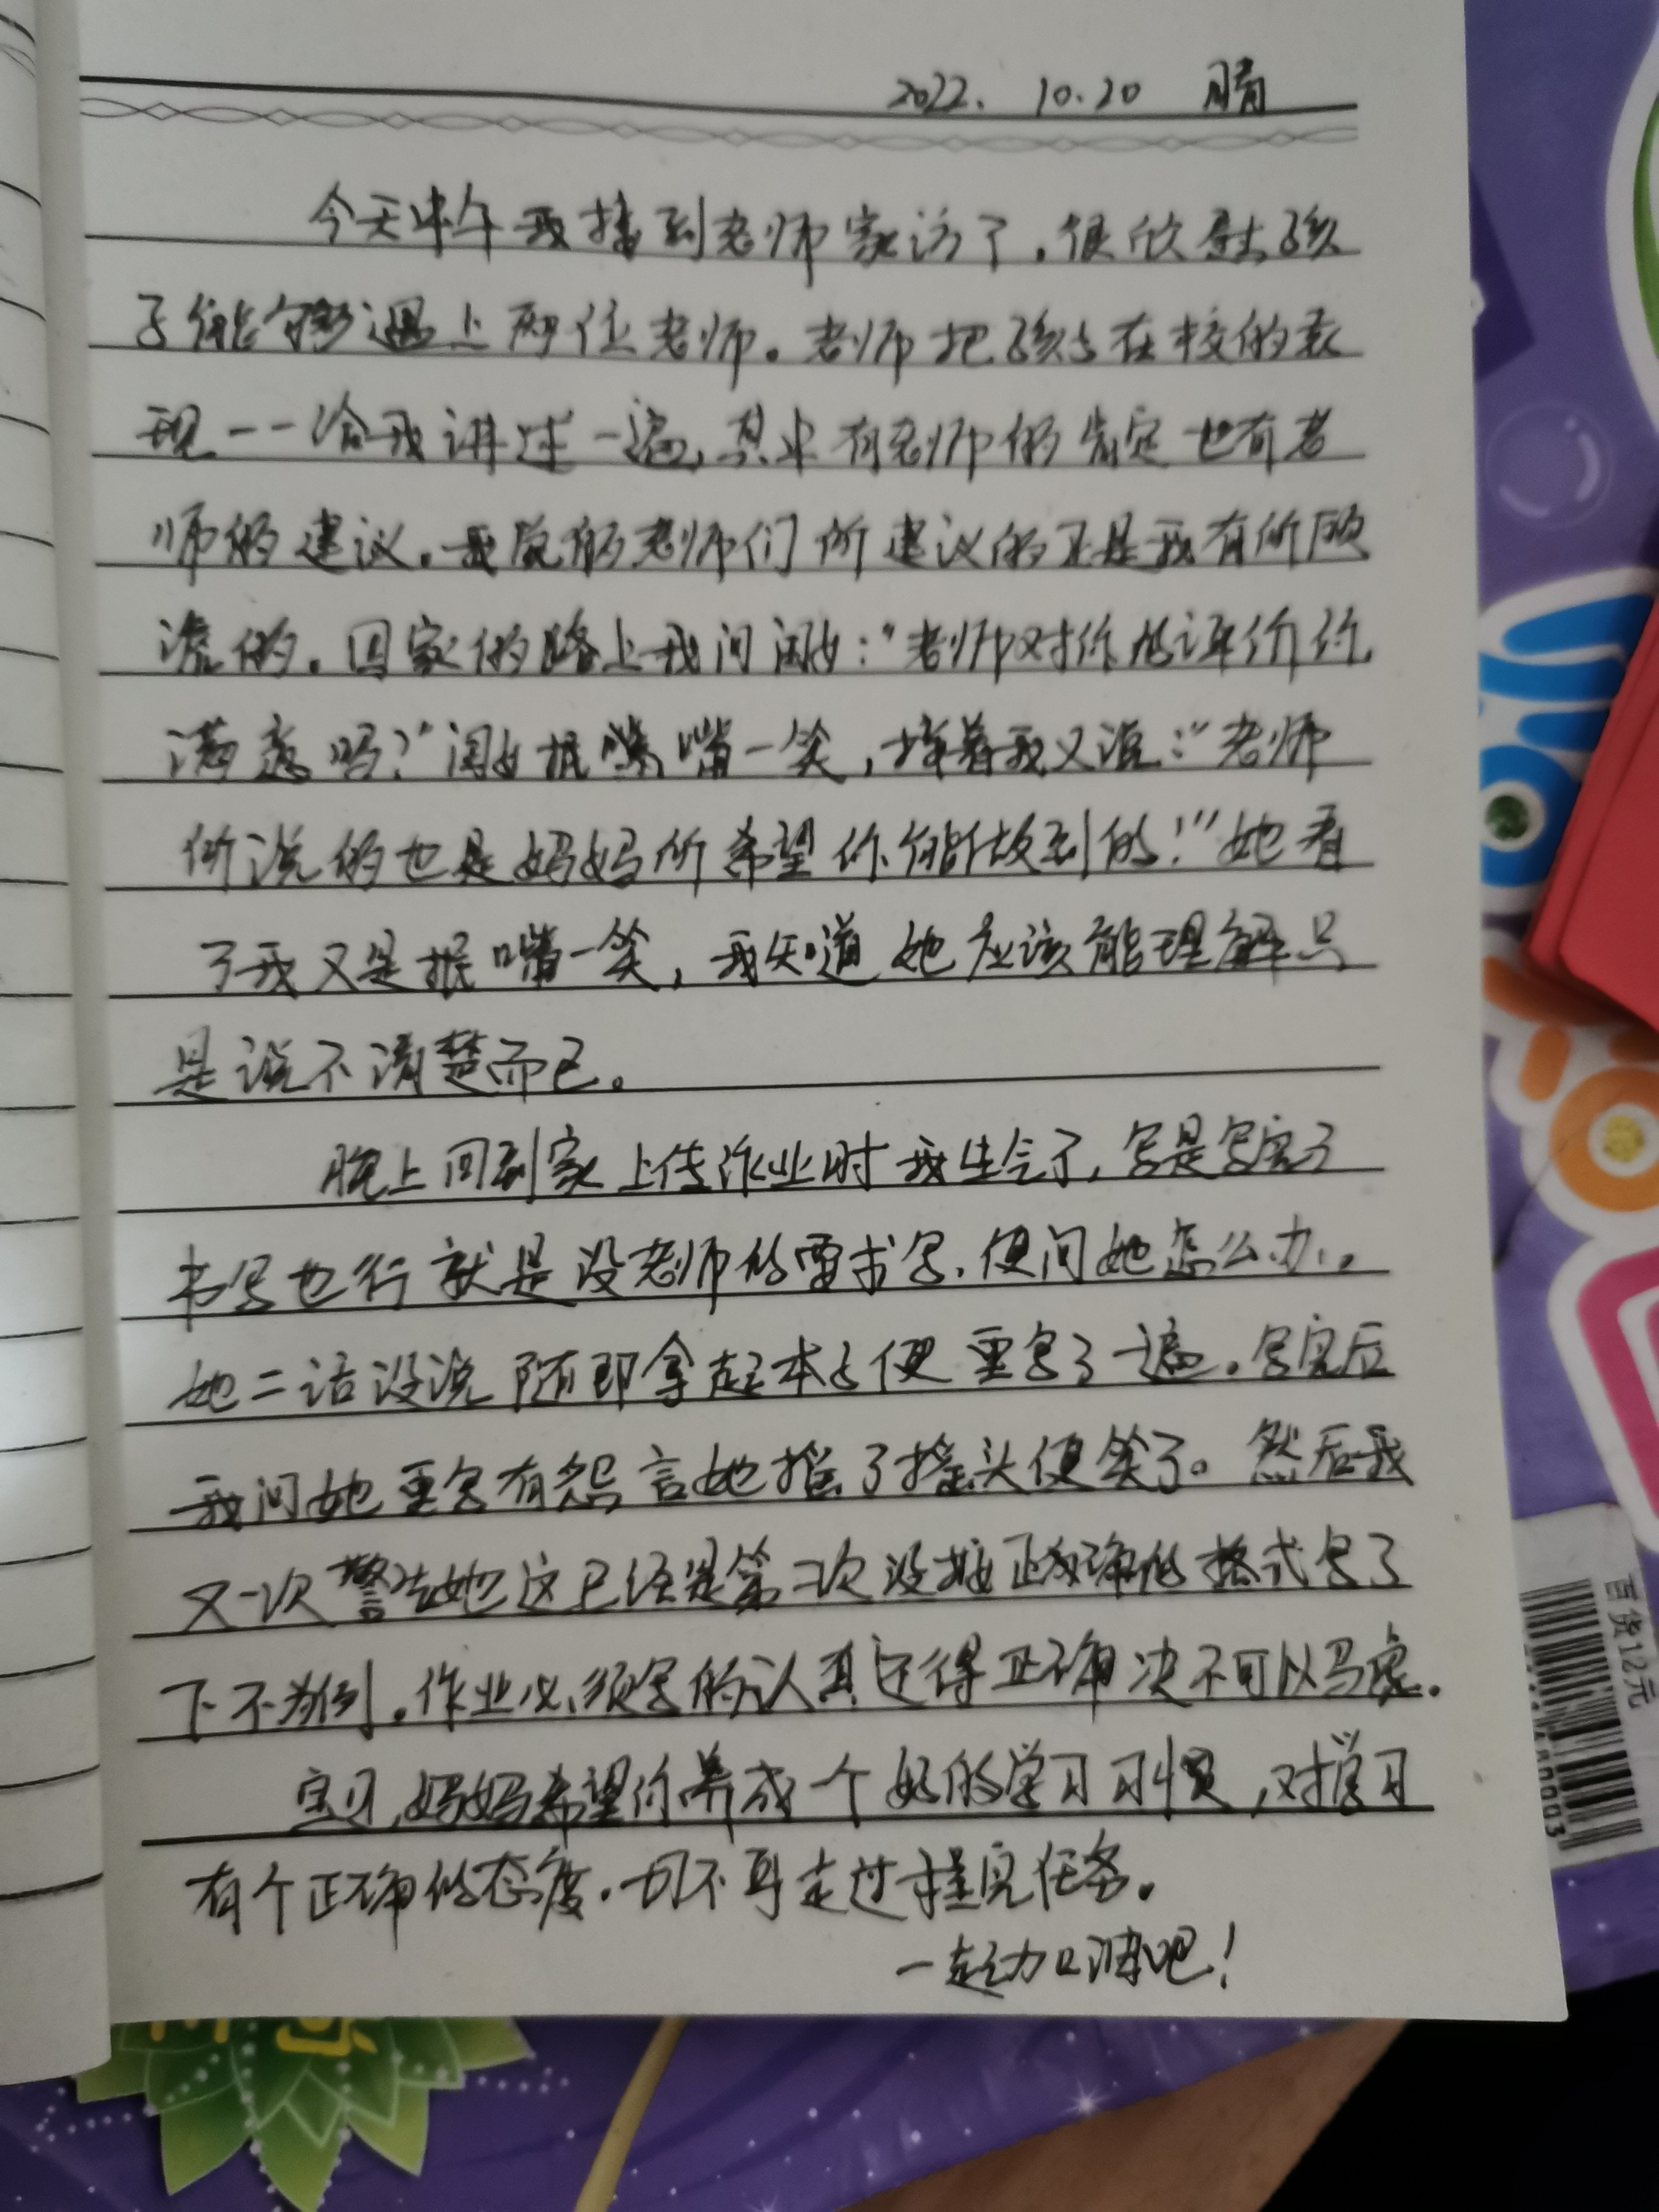 2022. 10.20 晴
今天中午我接到老师家访了，很欣慰孩
子能够遇上两位老师。老师把孩子在校的表
现一一给我讲述一遍，其中有老师的肯定也有老
师的建议。我觉的老师们所建议的正是我有所顾
虑的。回家的路上我问闺女：“老师对你的评价你
满意吗？”闺女抿嘴一笑，接着我又说：“老师
所说的也是妈妈所希望你能做到的！”她看
了我又是抿嘴一笑，我知道她应该能理解只
是说不清楚而已。
晚上回到家上传作业时我生气了，写是写完了
书写也行就是没老师的要求写，便问她怎么办。
她二话没说随即拿起本子便重写了一遍。写完后
我问她重写有怨言她摇了摇头便笑了。然后我
又一次警告她这已经是第二次没按正确的格式写了
下不为例。作业必须写的认真还得正确决不可以马虎。
宝贝，妈妈希望你养成一个好的学习习惯，对学习
有个正确的态度。切不可走过程完任务。
一起加油吧！
百货12元